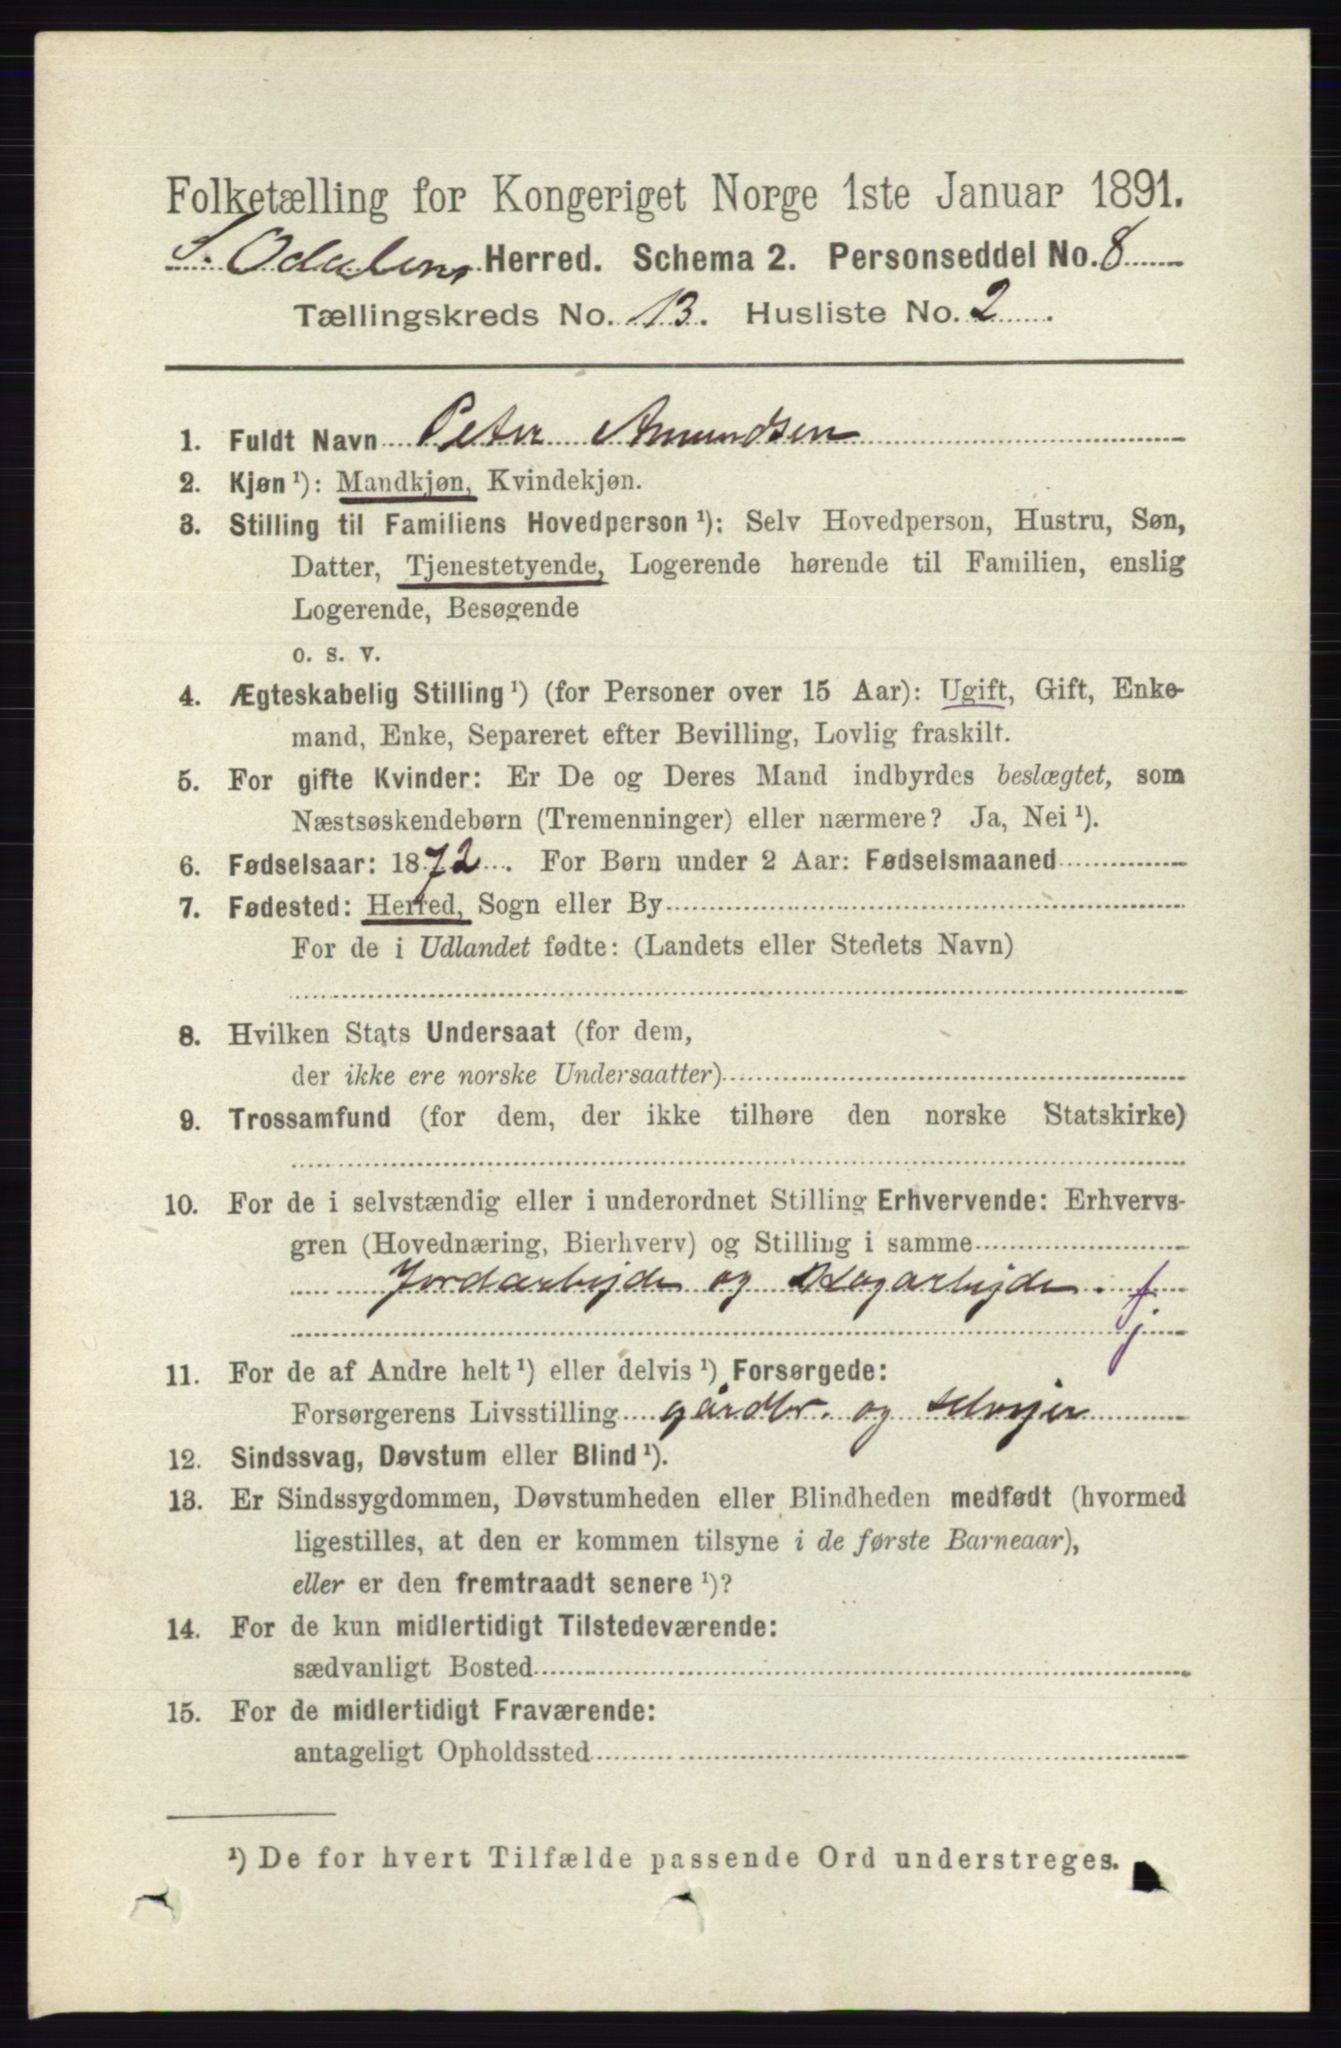 Folketælling for Kongeriget Norge 1ste Januar 1891.
S. Odalens Herred. Schema 2. Personseddel No. 8
Tællingskreds No. 13. Husliste No. 2
1. Fuldt Navn Peter Amundsen
2. Kjøn ¹): Mandkjøn, Kvindekjøn.
3. Stilling til Familiens Hovedperson ¹): Selv Hovedperson, Hustru, Søn,
Datter, Tjenestetyende, Logerende hørende til Familien, enslig
Logerende, Besøgende
o. s. v.
4. Ægteskabelig Stilling ¹) (for Personer over 15 Aar): Ugift, Gift, Enke-
mand, Enke, Separeret efter Bevilling, Lovlig fraskilt.
5. For gifte Kvinder: Er De og Deres Mand indbyrdes beslægtet, som
Næstsøskendebørn (Tremenninger) eller nærmere? Ja, Nei ¹).
6. Fødselsaar: 1872. For Børn under 2 Aar: Fødselsmaaned
7. Fødested: Herred, Sogn eller By
For de i Udlandet fødte: (Landets eller Stedets Navn)
8. Hvilken Stats Undersaat (for dem,
der ikke ere norske Undersaatter)
9. Trossamfund (for dem, der ikke tilhøre den norske Statskirke)
10. For de i selvstændig eller i underordnet Stilling Erhvervende: Erhvervs-
gren (Hovednæring, Bierhverv) og Stilling i samme
Jordarbejde og Skogarbejde. f
j
11. For de af Andre helt ¹) eller delvis ¹) Forsørgede:
Forsørgerens Livsstilling gårdbr. og selvejer
12. Sindssvag, Døvstum eller Blind ¹).
13. Er Sindssygdommen, Døvstumheden eller Blindheden medfødt (hvormed
ligestilles, at den er kommen tilsyne i de første Barneaar),
eller er den fremtraadt senere ¹)?
14. For de kun midlertidigt Tilstedeværende:
sædvanligt Bosted
15. For de midlertidigt Fraværende:
antageligt Opholdssted
¹) De for hvert Tilfælde passende Ord understreges.